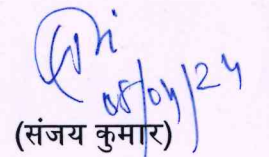 08/04/24
(संजय कुमार)